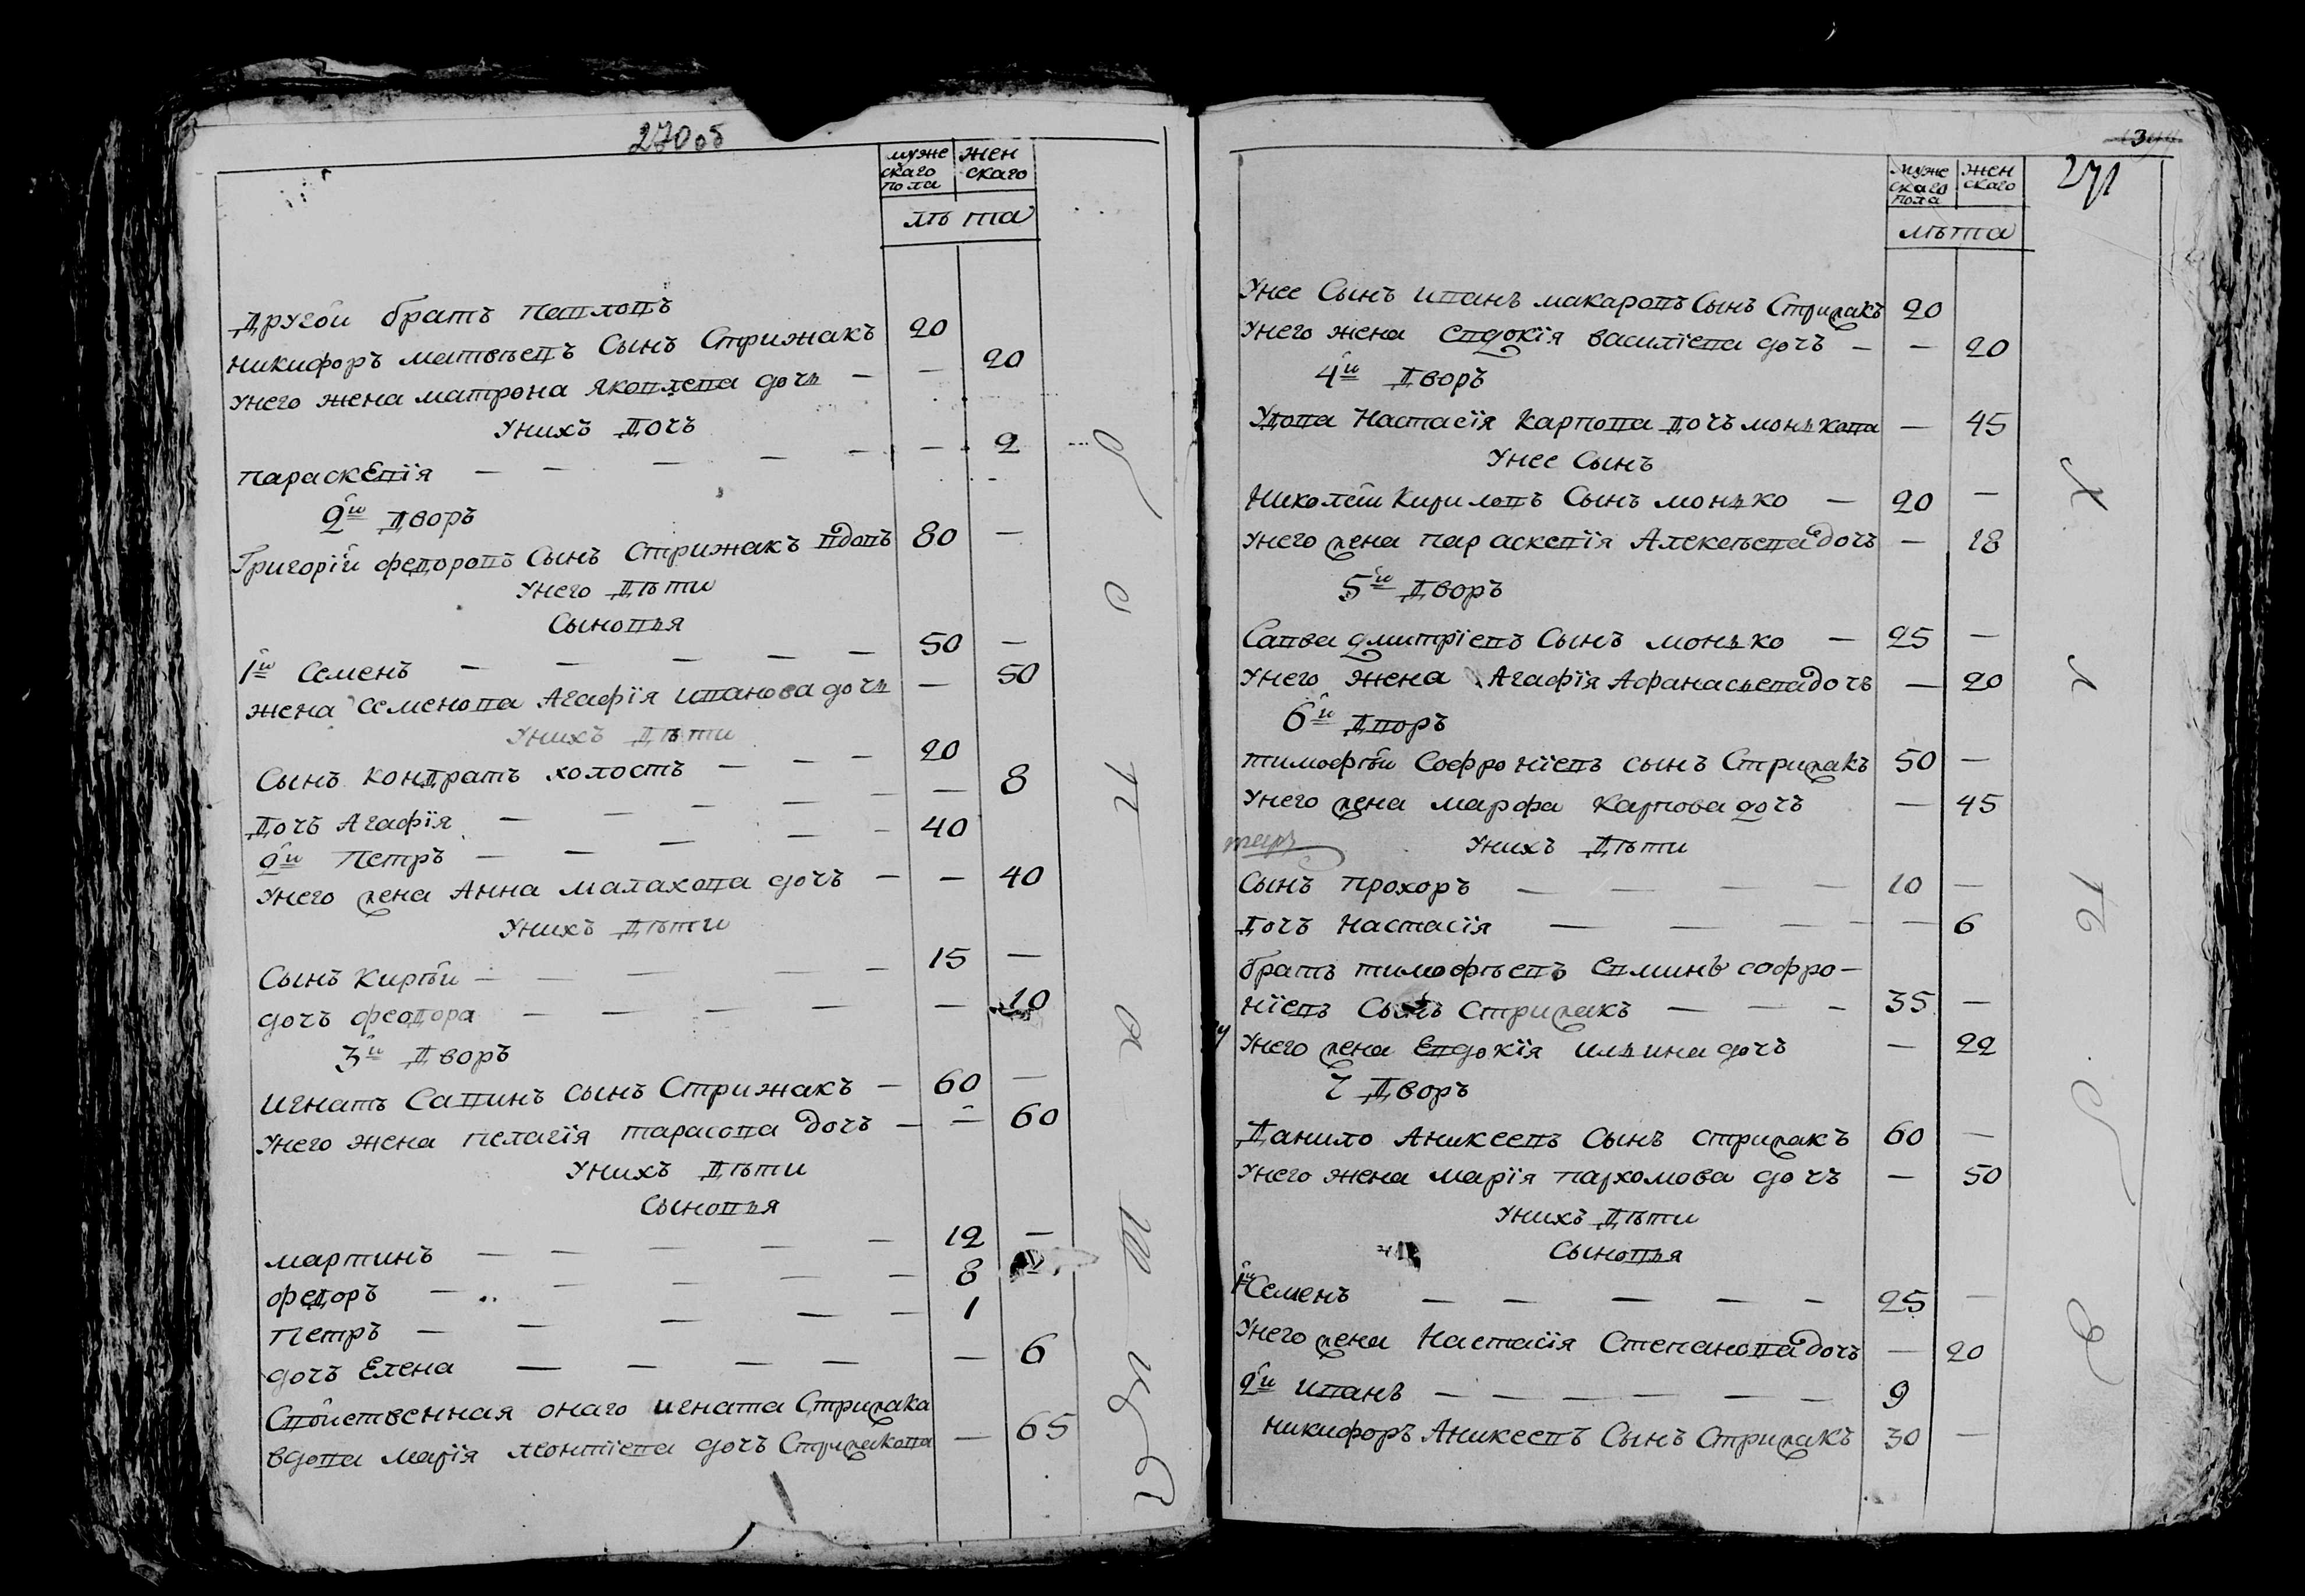 270об
муже
скаго
пола
жен
скаго
лѣта
Другой братъ Павловъ
Никифоръ Матвѣевъ Сынъ Стрижакъ 20
Унего жена Матрона Яковлева дочь — — 20
Унихъ Дочъ
Параскевїя — — — — — — 2
2й Дворъ
Григорїй Федоровъ Сынъ Стрижакъ вдовъ 80 —
Унего Дѣти
Сыновья
1й Семенъ — — — — — 50 —
жена Семенова Агафїя Иванова дочь — 50
Унихъ Дѣти
Сынъ Кондратъ холостъ — — — 20
Дочъ Агафїя — — — — — — 8
2й Петръ — — — — — 40
Унего жена Анна Малахова дочъ — — 40
Унихъ Дѣти
Сынъ Кирѣй — — — — — 15 —
дочъ Феодора — — — — — 10
3й Дворъ
Игнатъ Савинъ сынъ Стрижакъ — 60 —
Унего жена Пелагїя Тарасова дочъ — — 60
Унихъ Дѣти
Сыновья
Мартинъ — — — — — 12 —
Федоръ — — — — — 8
Петръ — — — — — 1
дочъ Елена — — — — — 6
Свойственная онаго Игната Стрижака
вдова Марїя Леонтїева дочъ Стрижакова — 65
271
муже
скаго
пола
жен
скаго
лѣта
Унее Сынъ Иванъ Макаровъ Сынъ Стрижакъ 20
Унего жена Евдокїя Василїева дочъ — — 20
4й Дворъ
Удова Настасїя Карпова Дочъ Монькова — 45
Унее Сынъ
Николай Кириловъ Сынъ Монько — 20 —
Унего жена Параскевїя Алексѣева дочъ — 18
5й Дворъ
Савва Дмитрїевъ Сынъ Монько — 25 —
Унего жена Агафїя Афанасьева дочъ — 20
6й Дворъ
Тимофѣй Софронїевъ сынъ Стрижакъ 50 —
Унего жена Марфа Карпова дочъ — 45
Унихъ Дѣти
Сынъ Прохоръ — — — — 10 —
Дочъ Настасїя — — — — — 6
братъ Тимофѣевъ Евминъ Софро-
нїевъ Сынъ Стрижакъ — — — 35 —
Унего жена Евдокїя Ильина дочъ — 22
7 Дворъ
Данило Аникеевъ Сынъ Стрижакъ 60 —
Унего жена Марїя Пархомова дочъ — 50
Унихъ Дѣти
Сыновья
1й Семенъ — — — — — 25 —
Унего жена Настасїя Степанова дочъ — 20
2й Иванъ — — — — — — 9
Никифоръ Аникеевъ Сынъ Стрижакъ 30 —